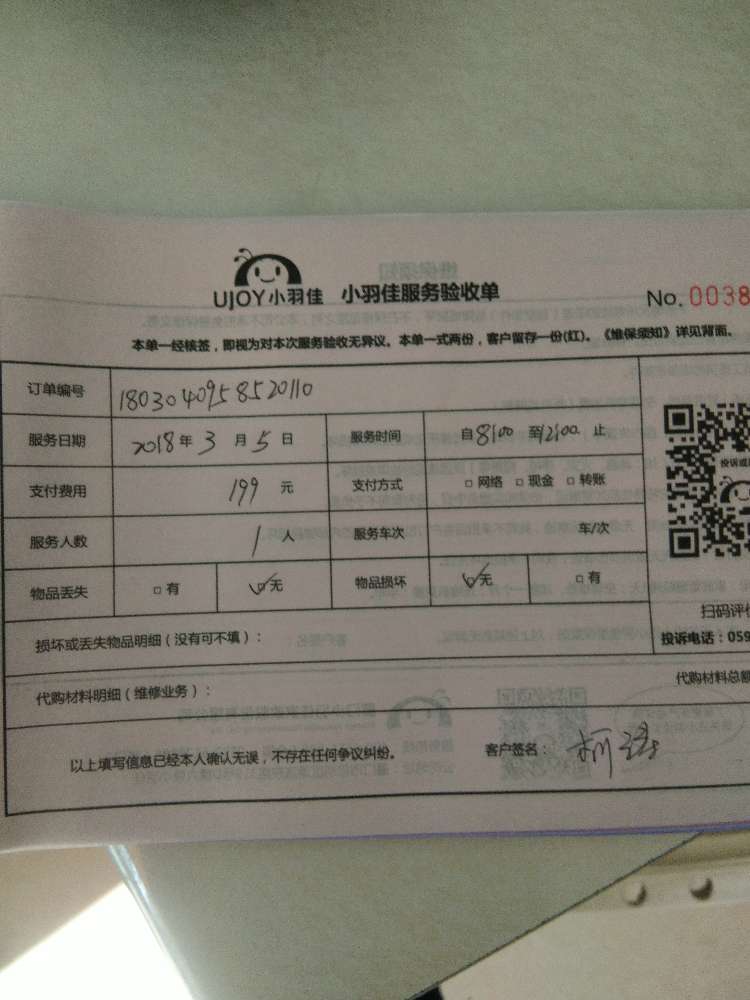 UJOY小羽佳 小羽佳服务验收单 No. 0038
本单一经核签，即视为对本次服务验收无异议。本单一式两份，客户留存一份(红)。《维保须知》详见背面。
订单编号 1803040958520110
服务日期 2018年3月5日 服务时间 自8:00至12:00止
支付费用 199元 支付方式 □网络 □现金 □转账
服务人数 1人 服务车次 车/次
物品丢失 □有 ☑无 物品损坏 ☑无 □有
扫码评价
损坏或丢失物品明细（没有可不填）： 投诉电话：059
代购材料明细（维修业务）： 代购材料总额
以上填写信息已经本人确认无误，不存在任何争议纠纷。 客户签名：